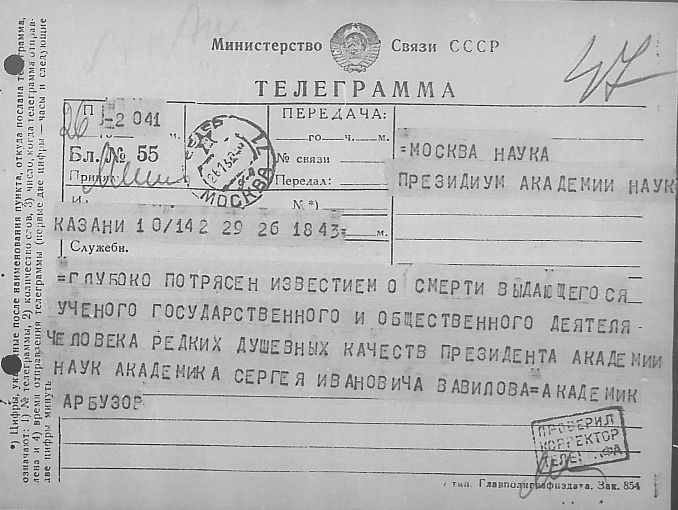 Министерство Связи СССР
ТЕЛЕГРАММА
47
26
-2 041
Бл. № 55
МОСКВА
ПЕРЕДАЧА:
го — ч. — м.
№ связи
Передал:
№ *)
=МОСКВА НАУКА
ПРЕЗИДИУМ АКАДЕМИИ НАУК
КАЗАНИ 10/142 29 26 1843= м.
Служебн.
=ГЛУБОКО ПОТРЯСЕН ИЗВЕСТИЕМ О СМЕРТИ ВЫДАЮЩЕГОСЯ
УЧЕНОГО ГОСУДАРСТВЕННОГО И ОБЩЕСТВЕННОГО ДЕЯТЕЛЯ-
ЧЕЛОВЕКА РЕДКИХ ДУШЕВНЫХ КАЧЕСТВ ПРЕЗИДЕНТА АКАДЕМИИ
НАУК АКАДЕМИКА СЕРГЕЯ ИВАНОВИЧА ВАВИЛОВА=АКАДЕМИК
АРБУЗОВ
ПРОВЕРИЛ
КОРРЕКТОР
тип. Главполиграфиздата. Зак. 854
*) Цифры, указанные после наименования пункта, откуда послана телеграмма,
означают: 1) № телеграммы, 2) количество слов, 3) число, когда телеграмма отправ-
лена и 4) время отправления телеграммы (первые две цифры — часы и следующие
две цифры минуты